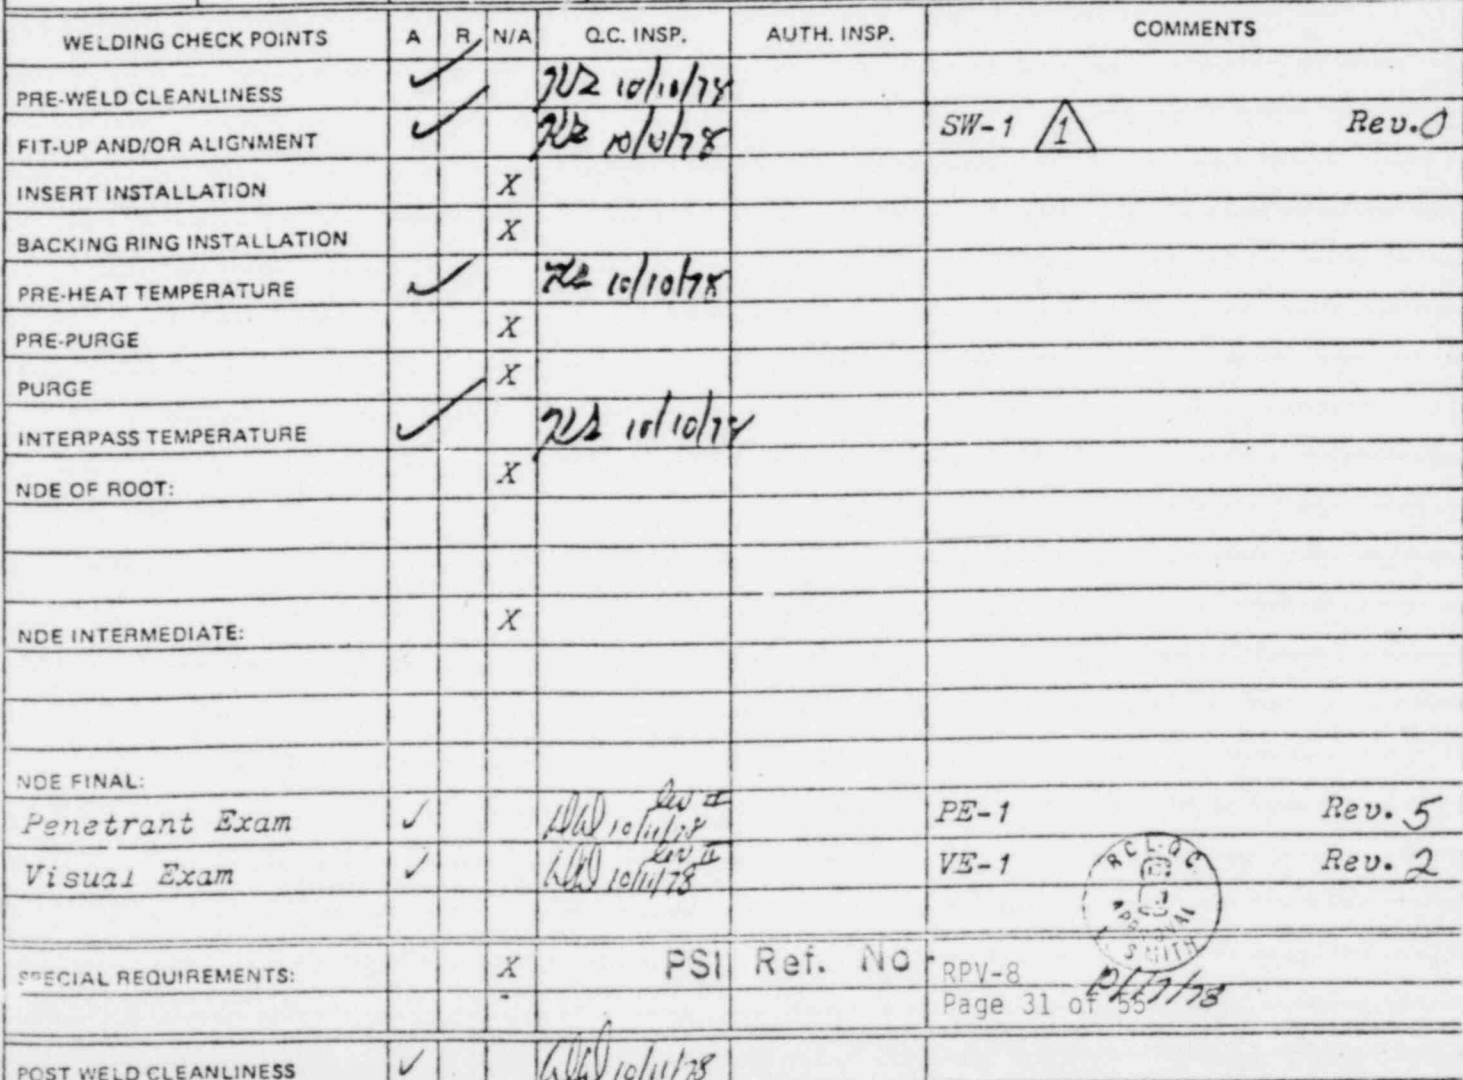 WELDING CHECK POINTS A R N/A Q.C. INSP. AUTH. INSP. COMMENTS
PRE-WELD CLEANLINESS ✓ 10/10/78
FIT-UP AND/OR ALIGNMENT ✓ 10/10/78 SW-1 1 Rev.0
INSERT INSTALLATION X
BACKING RING INSTALLATION X
PRE-HEAT TEMPERATURE ✓ 10/10/78
PRE-PURGE X
PURGE X
INTERPASS TEMPERATURE ✓ 10/10/78
NDE OF ROOT: X
NDE INTERMEDIATE: X
NDE FINAL:
Penetrant Exam ✓ 10/11/78 lev II PE-1 Rev. 5
Visual Exam ✓ 10/11/78 lev II VE-1 Rev. 2
RCL-QC
SMITH
SPECIAL REQUIREMENTS: X PSI Ref. No. RPV-8
Page 31 of 55
POST WELD CLEANLINESS ✓ 10/11/78